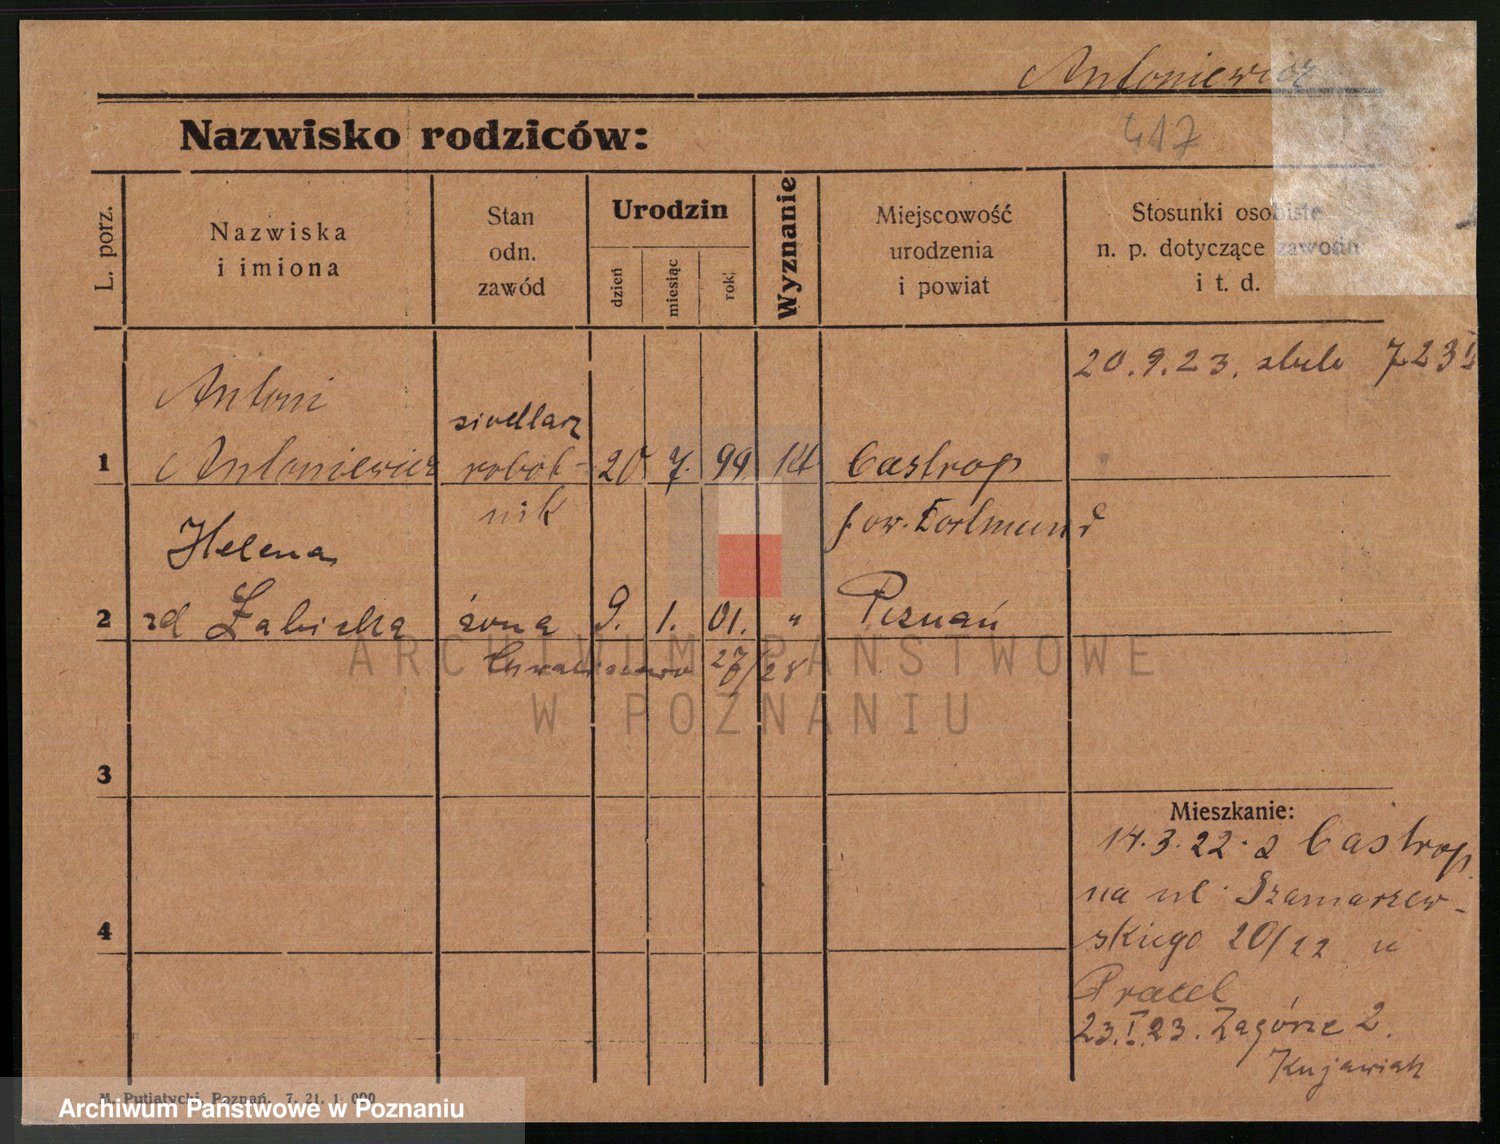 Antoniewicz
Nazwisko rodziców:
417
L. porz.
Nazwiska
i imiona
Stan
odn.
zawód
Urodzin
dzień
miesiąc
rok
Wyznanie
Miejscowość
urodzenia
i powiat
Stosunki osobiste
n. p. dotyczące zawodu
i t. d.
20. 9. 23.
1
Antoni
Antoniewicz
robot-
nik
20 7. 99 14
Castrop
pow. Dortmund
2
Helena
zd Żabicka
żona
9. 1. 01. "
Poznań
Chwaliszewo
3
4
Mieszkanie:
14. 3. 22. z Castrop
na ul. Szamarzew-
skiego 20/22 u
23. I 23. Zagórze 2.
Kujawiak
M. Putiatycki, Poznań. 7. 21. 1 000
ARCHIWUM PAŃSTWOWE
W POZNANIU
Archiwum Państwowe w Poznaniu